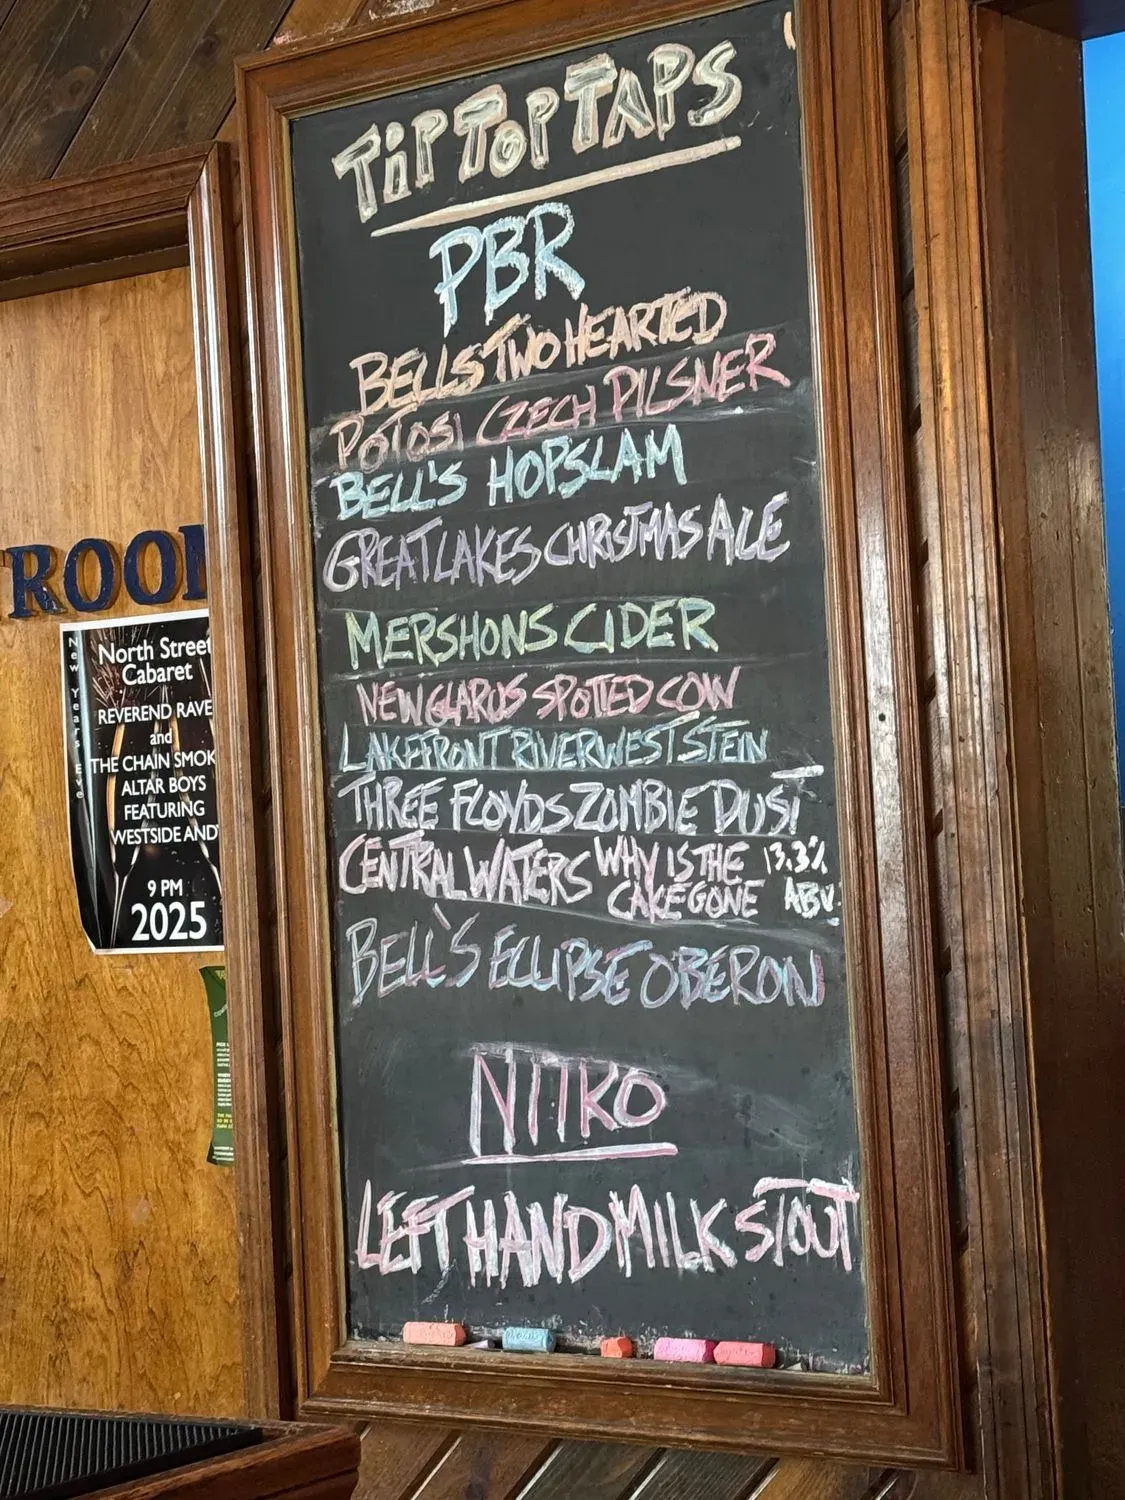 TIP TOP TAPS
PBR
BELLS TWO HEARTED
POTOSI CZECH PILSNER
BELL'S HOPSLAM
GREAT LAKES CHRISTMAS ALE
MERSHONS CIDER
NEW GLARUS SPOTTED COW
LAKEFRONT RIVERWEST STEIN
THREE FLOYDS ZOMBIE DUST
CENTRAL WATERS WHY IS THE CAKE GONE 13.3% ABV
BELL'S ECLIPSE OBERON
NITRO
LEFT HAND MILK STOUT
ROOM
New Years Eve
North Street
Cabaret
REVEREND RAVE
and
THE CHAIN SMOK
ALTAR BOYS
FEATURING
WESTSIDE AND
9 PM
2025